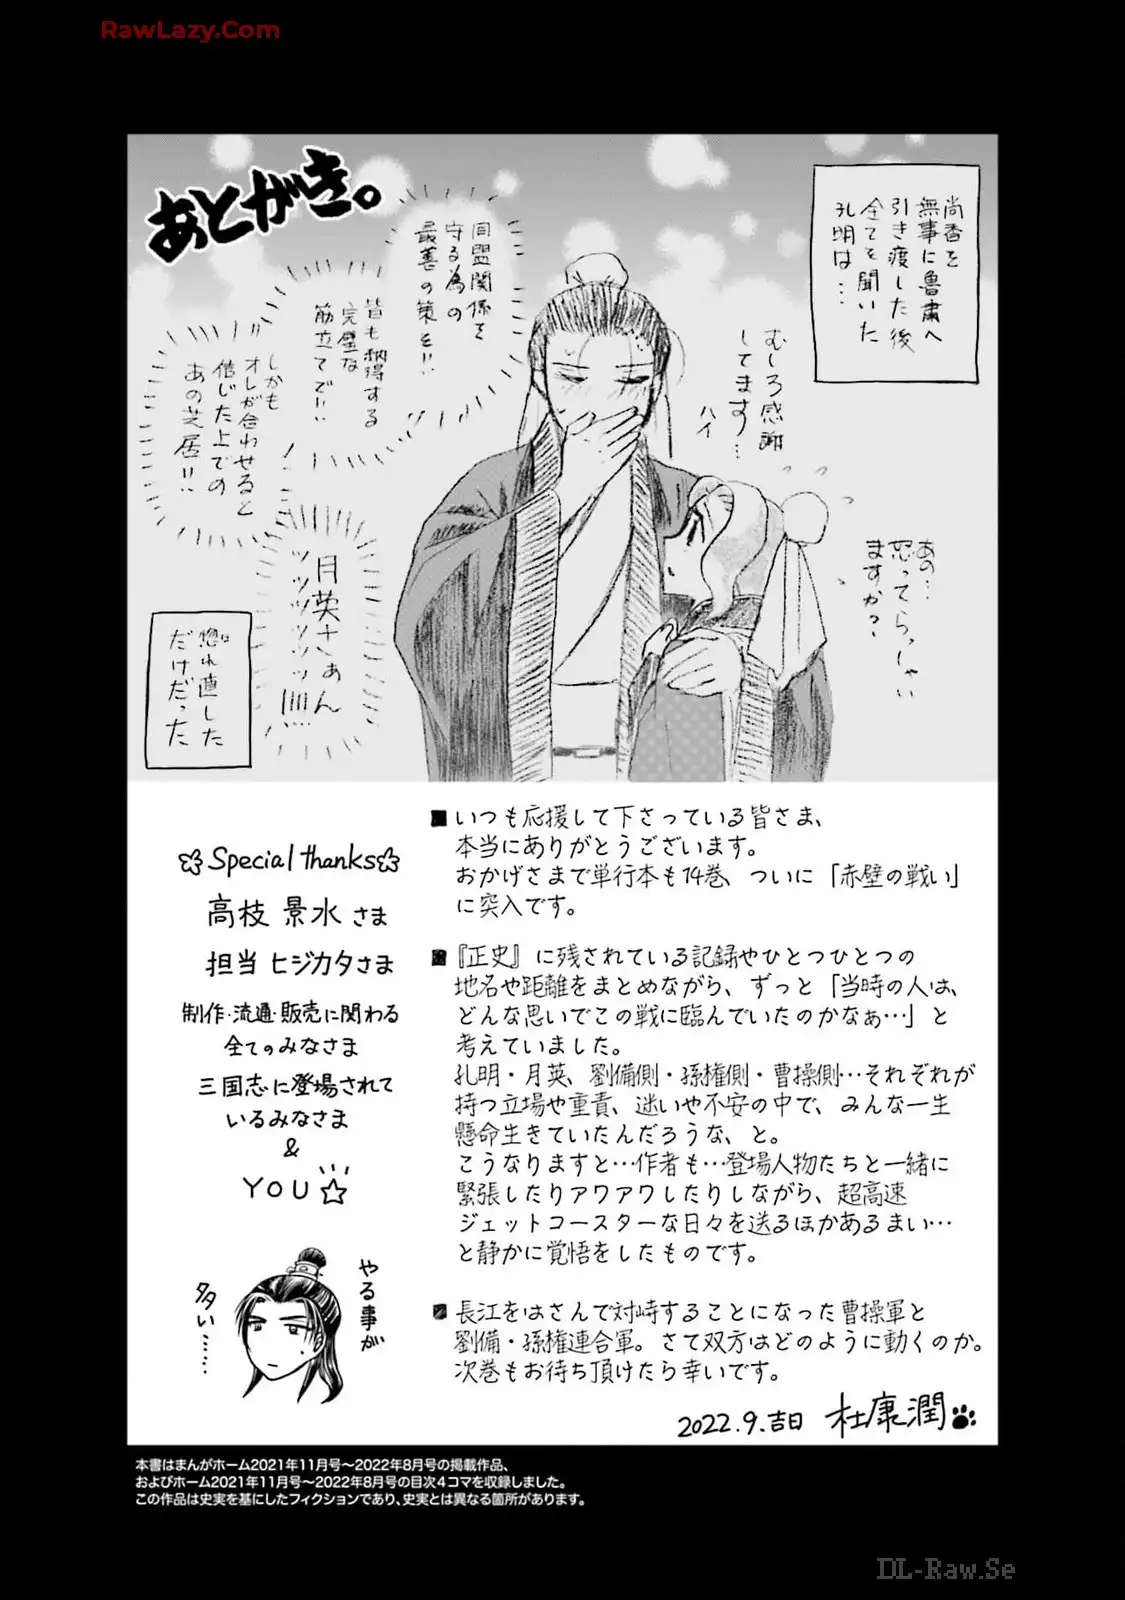 RawLazy.Com
あとがき。
尚香を
無事に魯粛へ
引き渡した後
全てを聞いた
孔明は…
むしろ感謝
してます…
ハイ
あの…
怒ってらっしゃい
ますか？
同盟関係を
守る為の
最善の策を!!
皆も納得する
完璧な
筋立てで!!
しかも
オレが合わせると
信じた上での
あの芝居!!
月英さぁん
ッッッッッッ!!!!!
惚れ直した
だけだった
■いつも応援して下さっている皆さま、
本当にありがとうございます。
おかげさまで単行本も14巻、ついに「赤壁の戦い」
に突入です。
■『正史』に残されている記録やひとつひとつの
地名や距離をまとめながら、ずっと「当時の人は、
どんな思いでこの戦に臨んでいたのかなぁ…」と
考えていました。
孔明・月英、劉備側・孫権側・曹操側…それぞれが
持つ立場や重責、迷いや不安の中で、みんな一生
懸命生きていたんだろうな、と。
こうなりますと…作者も…登場人物たちと一緒に
緊張したりアワアワしたりしながら、超高速
ジェットコースターな日々を送るほかあるまい…
と静かに覚悟をしたものです。
■長江をはさんで対峙することになった曹操軍と
劉備・孫権連合軍。さて双方はどのように動くのか。
次巻もお待ち頂けたら幸いです。
2022.9.吉日 杜康潤
Special thanks
高枝 景水さま
担当 ヒジカタさま
制作・流通・販売に関わる
全てのみなさま
三国志に登場されて
いるみなさま
&
YOU☆
やる事が
多い……
本書はまんがホーム2021年11月号〜2022年8月号の掲載作品、
およびホーム2021年11月号〜2022年8月号の目次4コマを収録しました。
この作品は史実を基にしたフィクションであり、史実とは異なる箇所があります。
DL-Raw.Se